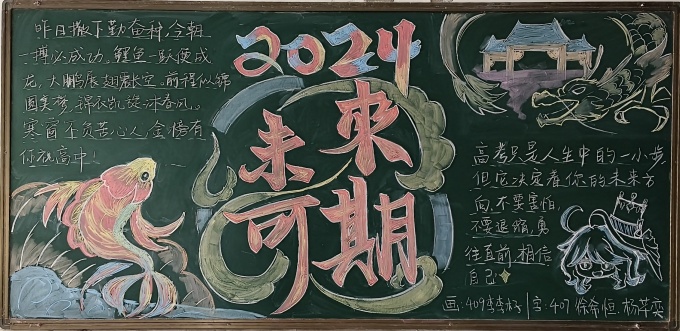 昨日撒下勤奋种,今朝
一搏必成功。鲤鱼一跃便成
龙,大鹏展翅震长空。前程似锦
圆美梦,锦衣凯旋沐春风。
寒窗不负苦心人,金榜有
你祝高中!
2024
未來
可期
高考只是人生中的一小步
但它决定着你的未来方
向,不要害怕,
不要退缩,勇
往直前,相信
自己
画:409李李 字:407 徐希恒.杨苹奕